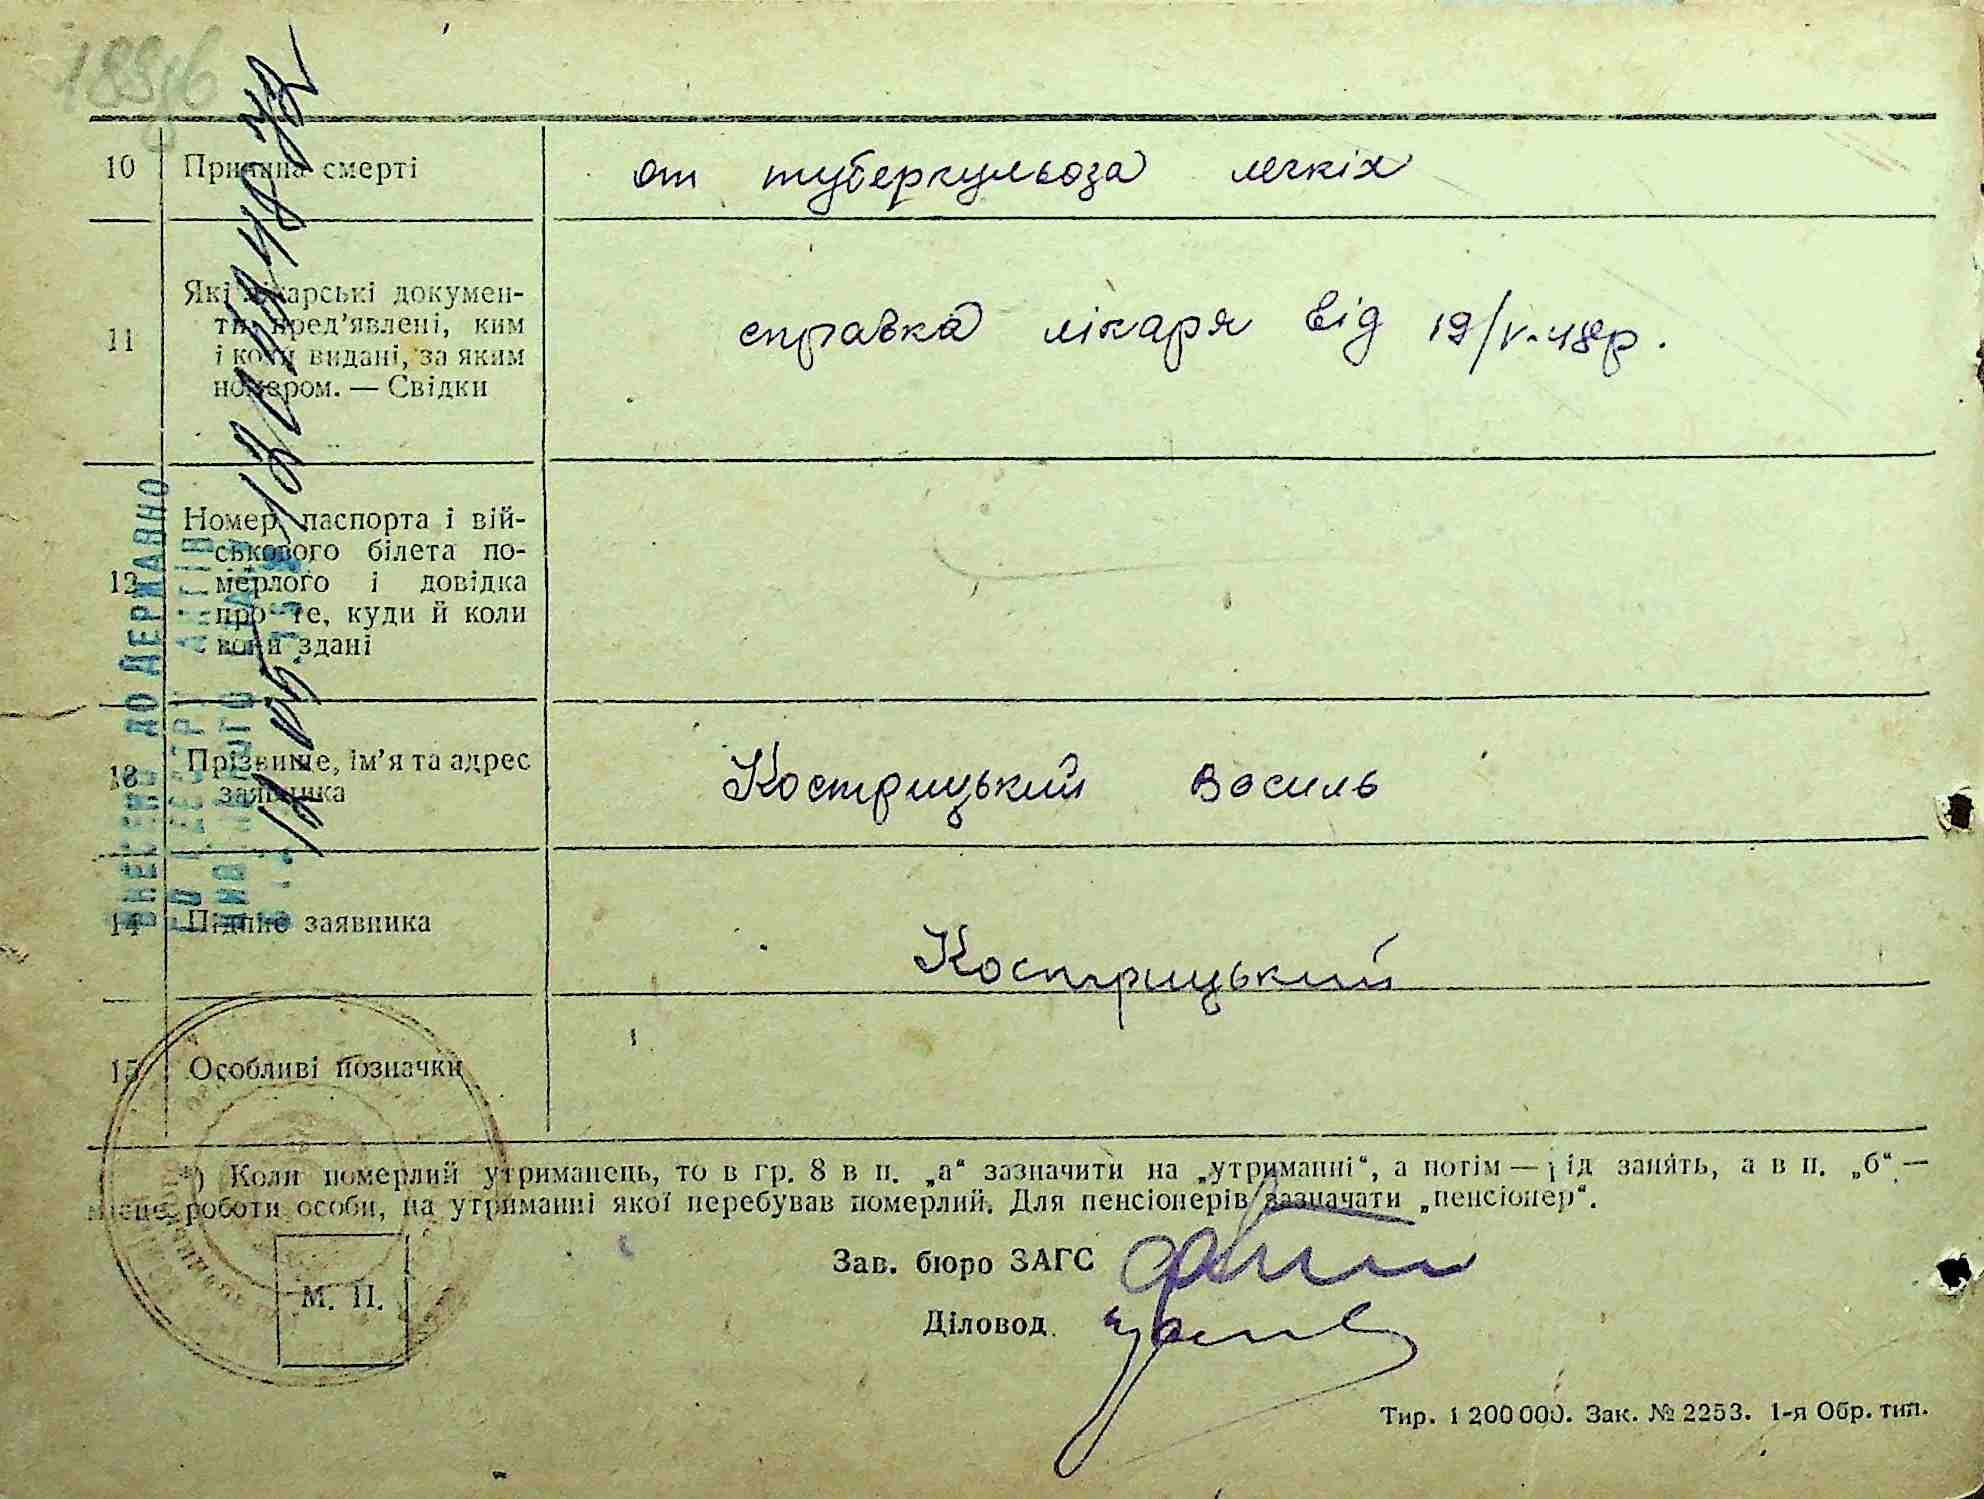 189зв
10 Причина смерті от туберкульоза легкіх
11 Які лікарські докумен-
ти пред’явлені, ким
і коли видані, за яким
номером. — Свідки
справка лікаря від 19/V-48р.
12 Номер паспорта і вій-
ськового білета по-
мерлого і довідка
про те, куди й коли
вони здані
13 Прізвище, ім’я та адрес
заявника
Кострицький Василь
14 Підпис заявника
Кострицький
15 Особливі позначки
*) Коли померлий утриманець, то в гр. 8 в п. „а“ зазначити на „утриманні“, а потім — рід занять, а в п. „б“ —
місце роботи особи, на утриманні якої перебував померлий. Для пенсіонерів зазначати „пенсіонер“.
Зав. бюро ЗАГС
Діловод
М. П.
Тир. 1 200 000. Зак. № 2253. 1-я Обр. тип.
ВНЕСЕНО ДО ДЕРЖАВНО